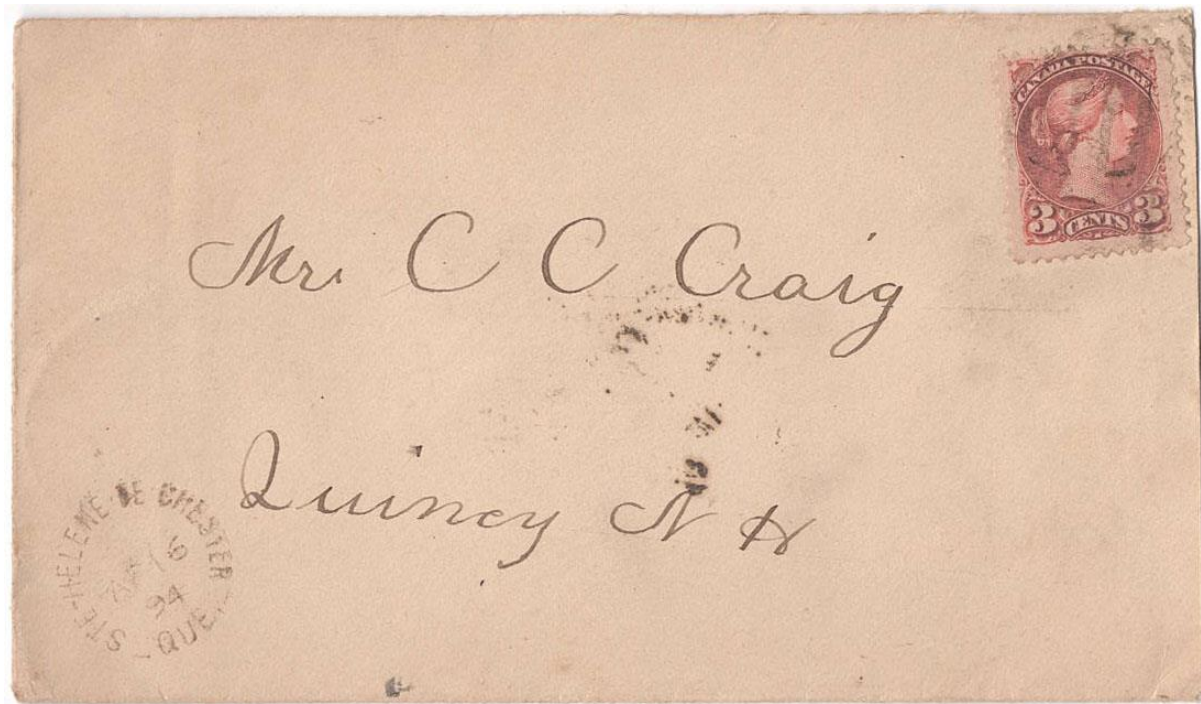 CANADA POSTAGE
3 CENTS 3
Mr. C C Craig
Quincy N H
STE-HELENE-DE-CHESTER
94
QUE.